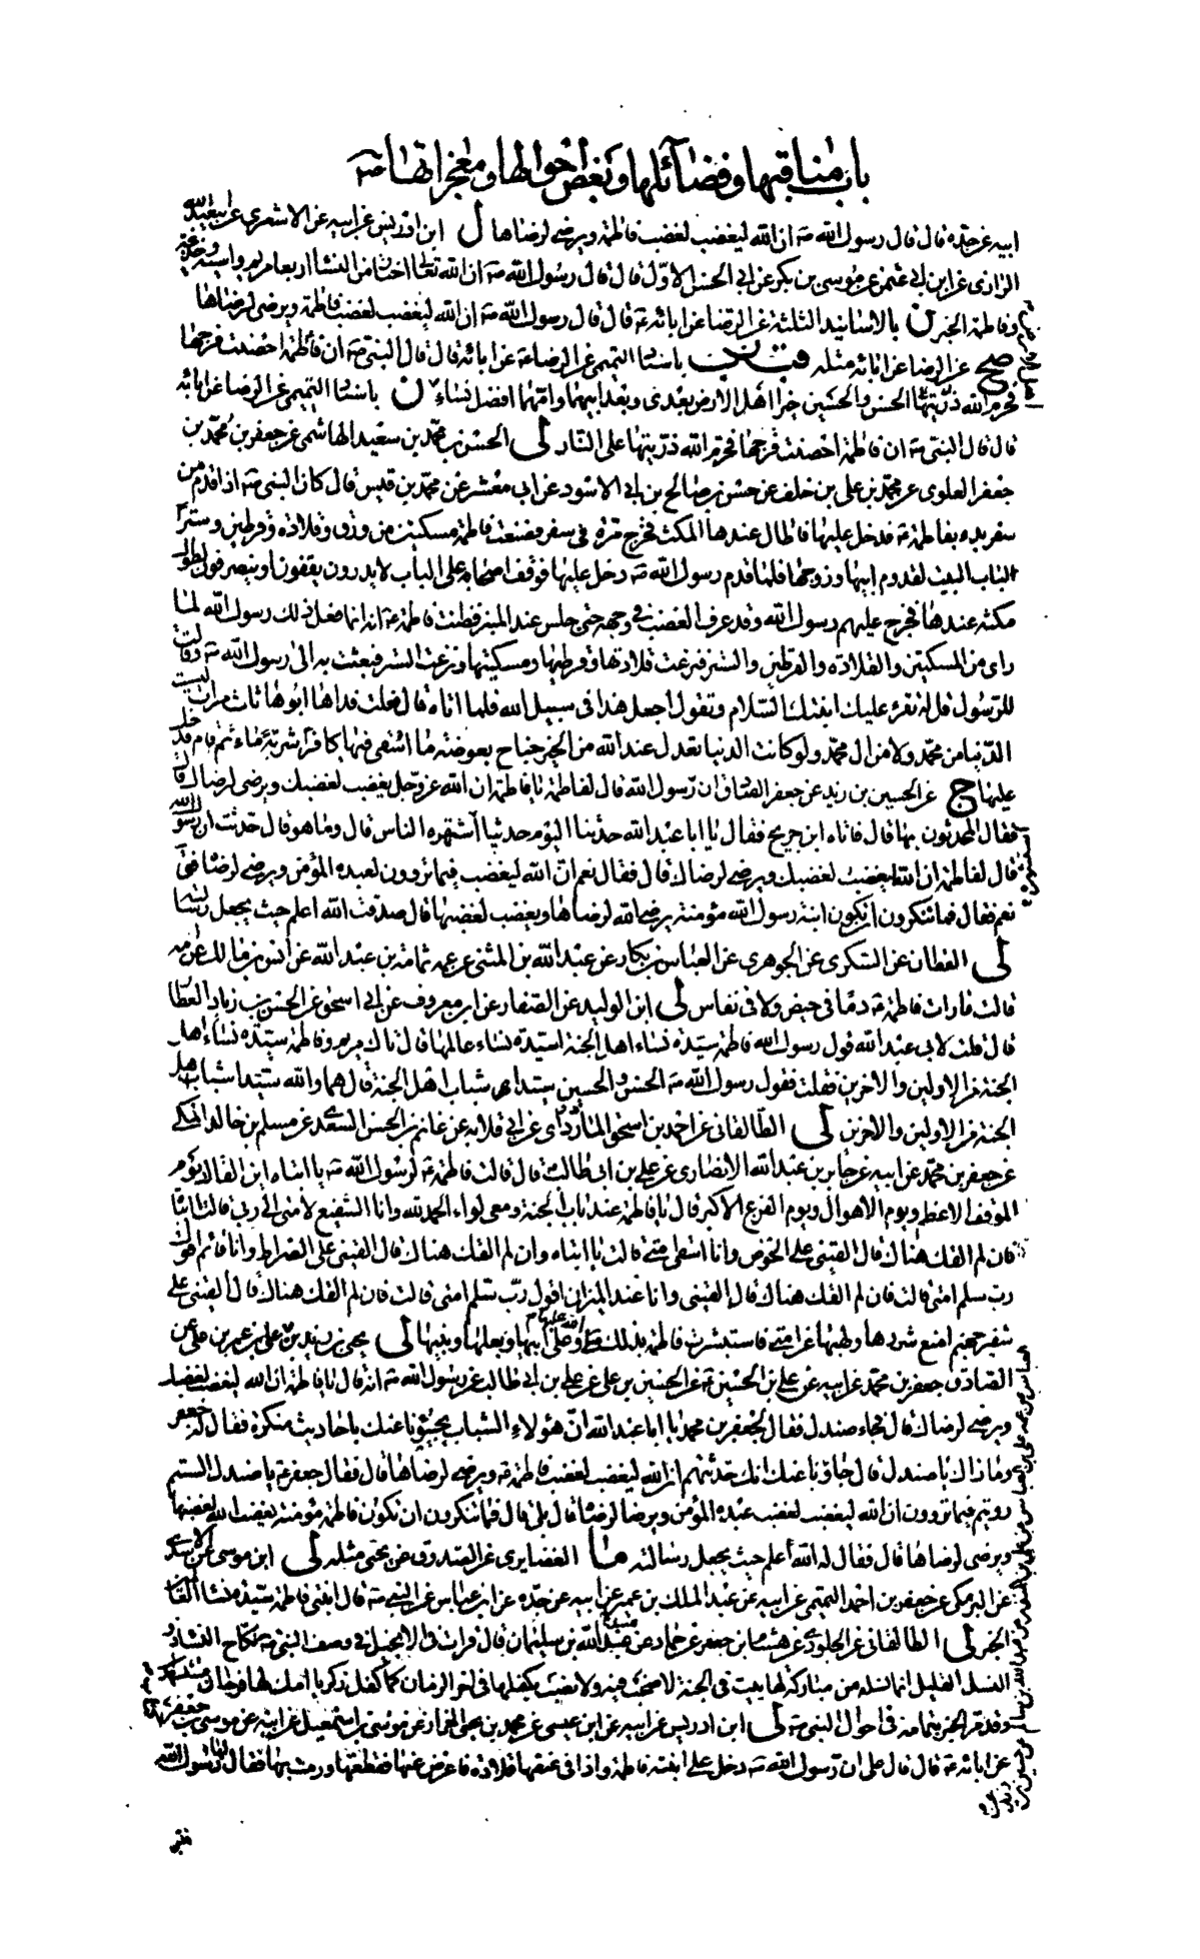 باب مناقبها وفضائلها وبعض احوالها ومعجزاتها ص
ابيه عن جده قال قال رسول الله ص ان الله ليغضب لغضب فاطمة ويرضى لرضاها ل ابن ادريس عن ابيه عن الاشعري عن ابيعبد الله
الرازي عن ابن ابي عثمن عن موسى بن بكر عن ابي الحسن الاول قال قال رسول الله ص ان الله تعالى اختار من النسا اربعا مريم واسية وخديجة
وفاطمة الخبر ن بالاسانيد الثلثة عن الرضا عن ابائه ع قال قال رسول الله ص ان الله ليغضب لغضب فاطمة ويرضى لرضاها
صح عن الرضا عن ابائه مثله باسناد التميمي عن الرضا ع عن ابائه قال قال النبي ص ان فاطمة احصنت فرجها
فحرم الله ذريتها الحسن والحسين خير اهل الارض بعدي وبعد ابيهما وامهما افضل نساء ن باسناد التميمي عن الرضا عن ابائه
قال قال النبي ص ان فاطمة احصنت فرجها فحرم الله ذريتها على النار لى الحسن بن محمد بن سعيد الهاشمي عن جعفر بن محمد بن
جعفر العلوي عن محمد بن علي بن خلف عن حسن بن صالح بن ابي الاسود عن ابي معشر عن محمد بن قيس قال كان النبي ص اذا قدم من
سفر بدء بفاطمة ع فدخل عليها فاطال عندها المكث فخرج مرة في سفر فصنعت فاطمة مسكتين من ورق وقلادة وقرطين وسترا
لباب البيت لقدوم ابيها وزوجها فلما قدم رسول الله ص دخل عليها فوقف اصحابه على الباب لا يدرون يقفون او ينصرفون لطول
مكثه عندها فخرج عليهم رسول الله وقد عرف الغضب في وجهه حتى جلس عند المنبر فظنت فاطمة ع انه انما فعل ذلك رسول الله لما
راى من المسكتين والقلادة والقرطين والستر فنزعت قلادتها وقرطيها ومسكتيها ونزعت الستر فبعثت به الى رسول الله ص وقالت
للرسول قل له تقرء عليك ابنتك السلام وتقول اجعل هذا في سبيل الله فلما اتاه قال فعلت فداها ابوها ثلث مرات ليست
الدنيا من محمد ولا من ال محمد ولو كانت الدنيا تعدل عند الله من الخير جناح بعوضة ما اسقى فيها كافرا شربة ماء ثم قام فدخل
عليها ج عن الحسين بن زيد عن جعفر الصادق ان رسول الله قال لفاطمة يا فاطمة ان الله عز وجل يغضب لغضبك ويرضى لرضاك قال
فقال المحدثون بها قال فاتاه ابن جريح فقال يا ابا عبد الله حدثنا اليوم حديثا استهزه الناس قال وما هو قال حدثت ان رسول الله
قال لفاطمة ان الله ليغضب لغضبك ويرضى لرضاك قال فقال نعم ان الله ليغضب فيما تروون لعبده المؤمن ويرضى لرضاه فق
نعم فقال فما تنكرون ان تكون ابنة رسول الله مؤمنة يرضى الله لرضاها ويغضب لغضبها قال صدقت الله اعلم حيث يجعل رسالته
لى القطان عن السكري عن الجوهري عن العباس بن بكار عن عبد الله بن المثنى عن عمه ثمامة بن عبد الله عن انس بن مالك عن امه
قالت ما رات فاطمة ع دما في حيض ولا في نفاس لى ابن الوليد عن الصفار عن ابن معروف عن ابي اسحق عن الحسن بن زياد العطار
قال قلت لابي عبد الله قول رسول الله فاطمة سيدة نساء اهل الجنة اسيدة نساء عالمها قال ذاك مريم وفاطمة سيدة نساء اهل
الجنة من الاولين والاخرين فقلت فقول رسول الله ص الحسن والحسين سيدا شباب اهل الجنة قال هما والله سيدا شباب اهل
الجنة من الاولين والاخرين لى الطالقاني عن احمد بن اسحق المادرائي عن ابي قلابه عن غانم بن الحسن السعدي عن مسلم بن خالد المكي
عن جعفر بن محمد عن ابيه عن جابر بن عبد الله الانصاري عن علي بن ابي طالب قال قالت فاطمة ع لرسول الله ص يا ابتاه اين القاك يوم
الموقف الاعظم ويوم الاهوال ويوم الفزع الاكبر قال يا فاطمة عند باب الجنة ومعي لواء الحمد لله وانا الشفيع لامتي الى ربي قالت يا ابتاه
فان لم القك هناك قال القيني على الحوض وانا اسقي امتي قالت يا ابتاه وان لم القك هناك قال القيني على الصراط وانا قائم اقول
رب سلم امتي قالت فان لم القك هناك قال القيني وانا عند الميزان اقول رب سلم امتي قالت فان لم القك هناك قال القيني على
شفير جهنم امنع شررها ولهبها عن امتي فاستبشرت فاطمة بذلك صلى الله عليها وعلى ابيها وبعلها وبنيها لى يحيى بن زيد بن علي بن عمر بن علي عن
الصادق جعفر بن محمد عن ابيه عن علي بن الحسين ع عن الحسين بن علي عن علي بن ابي طالب عن رسول الله ص انه قال يا فاطمة ان الله ليغضب لغضبك
ويرضى لرضاك قال فجاء صندل فقال لجعفر بن محمد يا ابا عبد الله ان هؤلاء الشباب يجيئونا عنك باحاديث منكرة فقال له جعفر
وما ذاك يا صندل قال جاؤنا عنك انك حدثتهم ان الله ليغضب لغضب فاطمة ع ويرضى لرضاها قال فقال جعفر ع يا صندل الستم
رويتم فيما تروون ان الله ليغضب لغضب عبده المؤمن ويرضا لرضاه قال بلى قال فما تنكرون ان تكون فاطمة مؤمنة يغضب الله لغضبها
ويرضى لرضاها قال فقال له الله اعلم حيث يجعل رسالته ما الغضايري عن الصدوق عن يحيى مثله لى ابن موسى عن الاسدي
عن البرمكي عن جعفر بن احمد التميمي عن ابيه عن عبد الملك بن عمير عن ابيه عن جده عن ابن عباس عن النبي ص قال ابنتي فاطمة سيدة نساء العالمين
الخبر لى الطالقاني عن الجلودي عن هشام بن جعفر عن حماد عن عبد الله بن سليمان قال قرات في الانجيل في وصف النبي ص نكاح النساء ذو
النسل القليل انما نسله من مباركة لها بيت في الجنة لا صخب فيه ولا نصب يكفلها في اخر الزمان كما كفل زكريا امك لها فرخان مستشهدان
وقد مر الخبر بتمامه في احوال النبي ص لى ابن ادريس عن ابيه عن ابن عيسى عن محمد بن يحيى الخزاز عن موسى بن اسمعيل عن ابيه عن موسى بن جعفر
عن ابائه ع قال قال علي ان رسول الله ص دخل على ابنته فاطمة واذا في عنقها قلادة فاعرض عنها فقطعتها ورمت بها فقال لها رسول الله